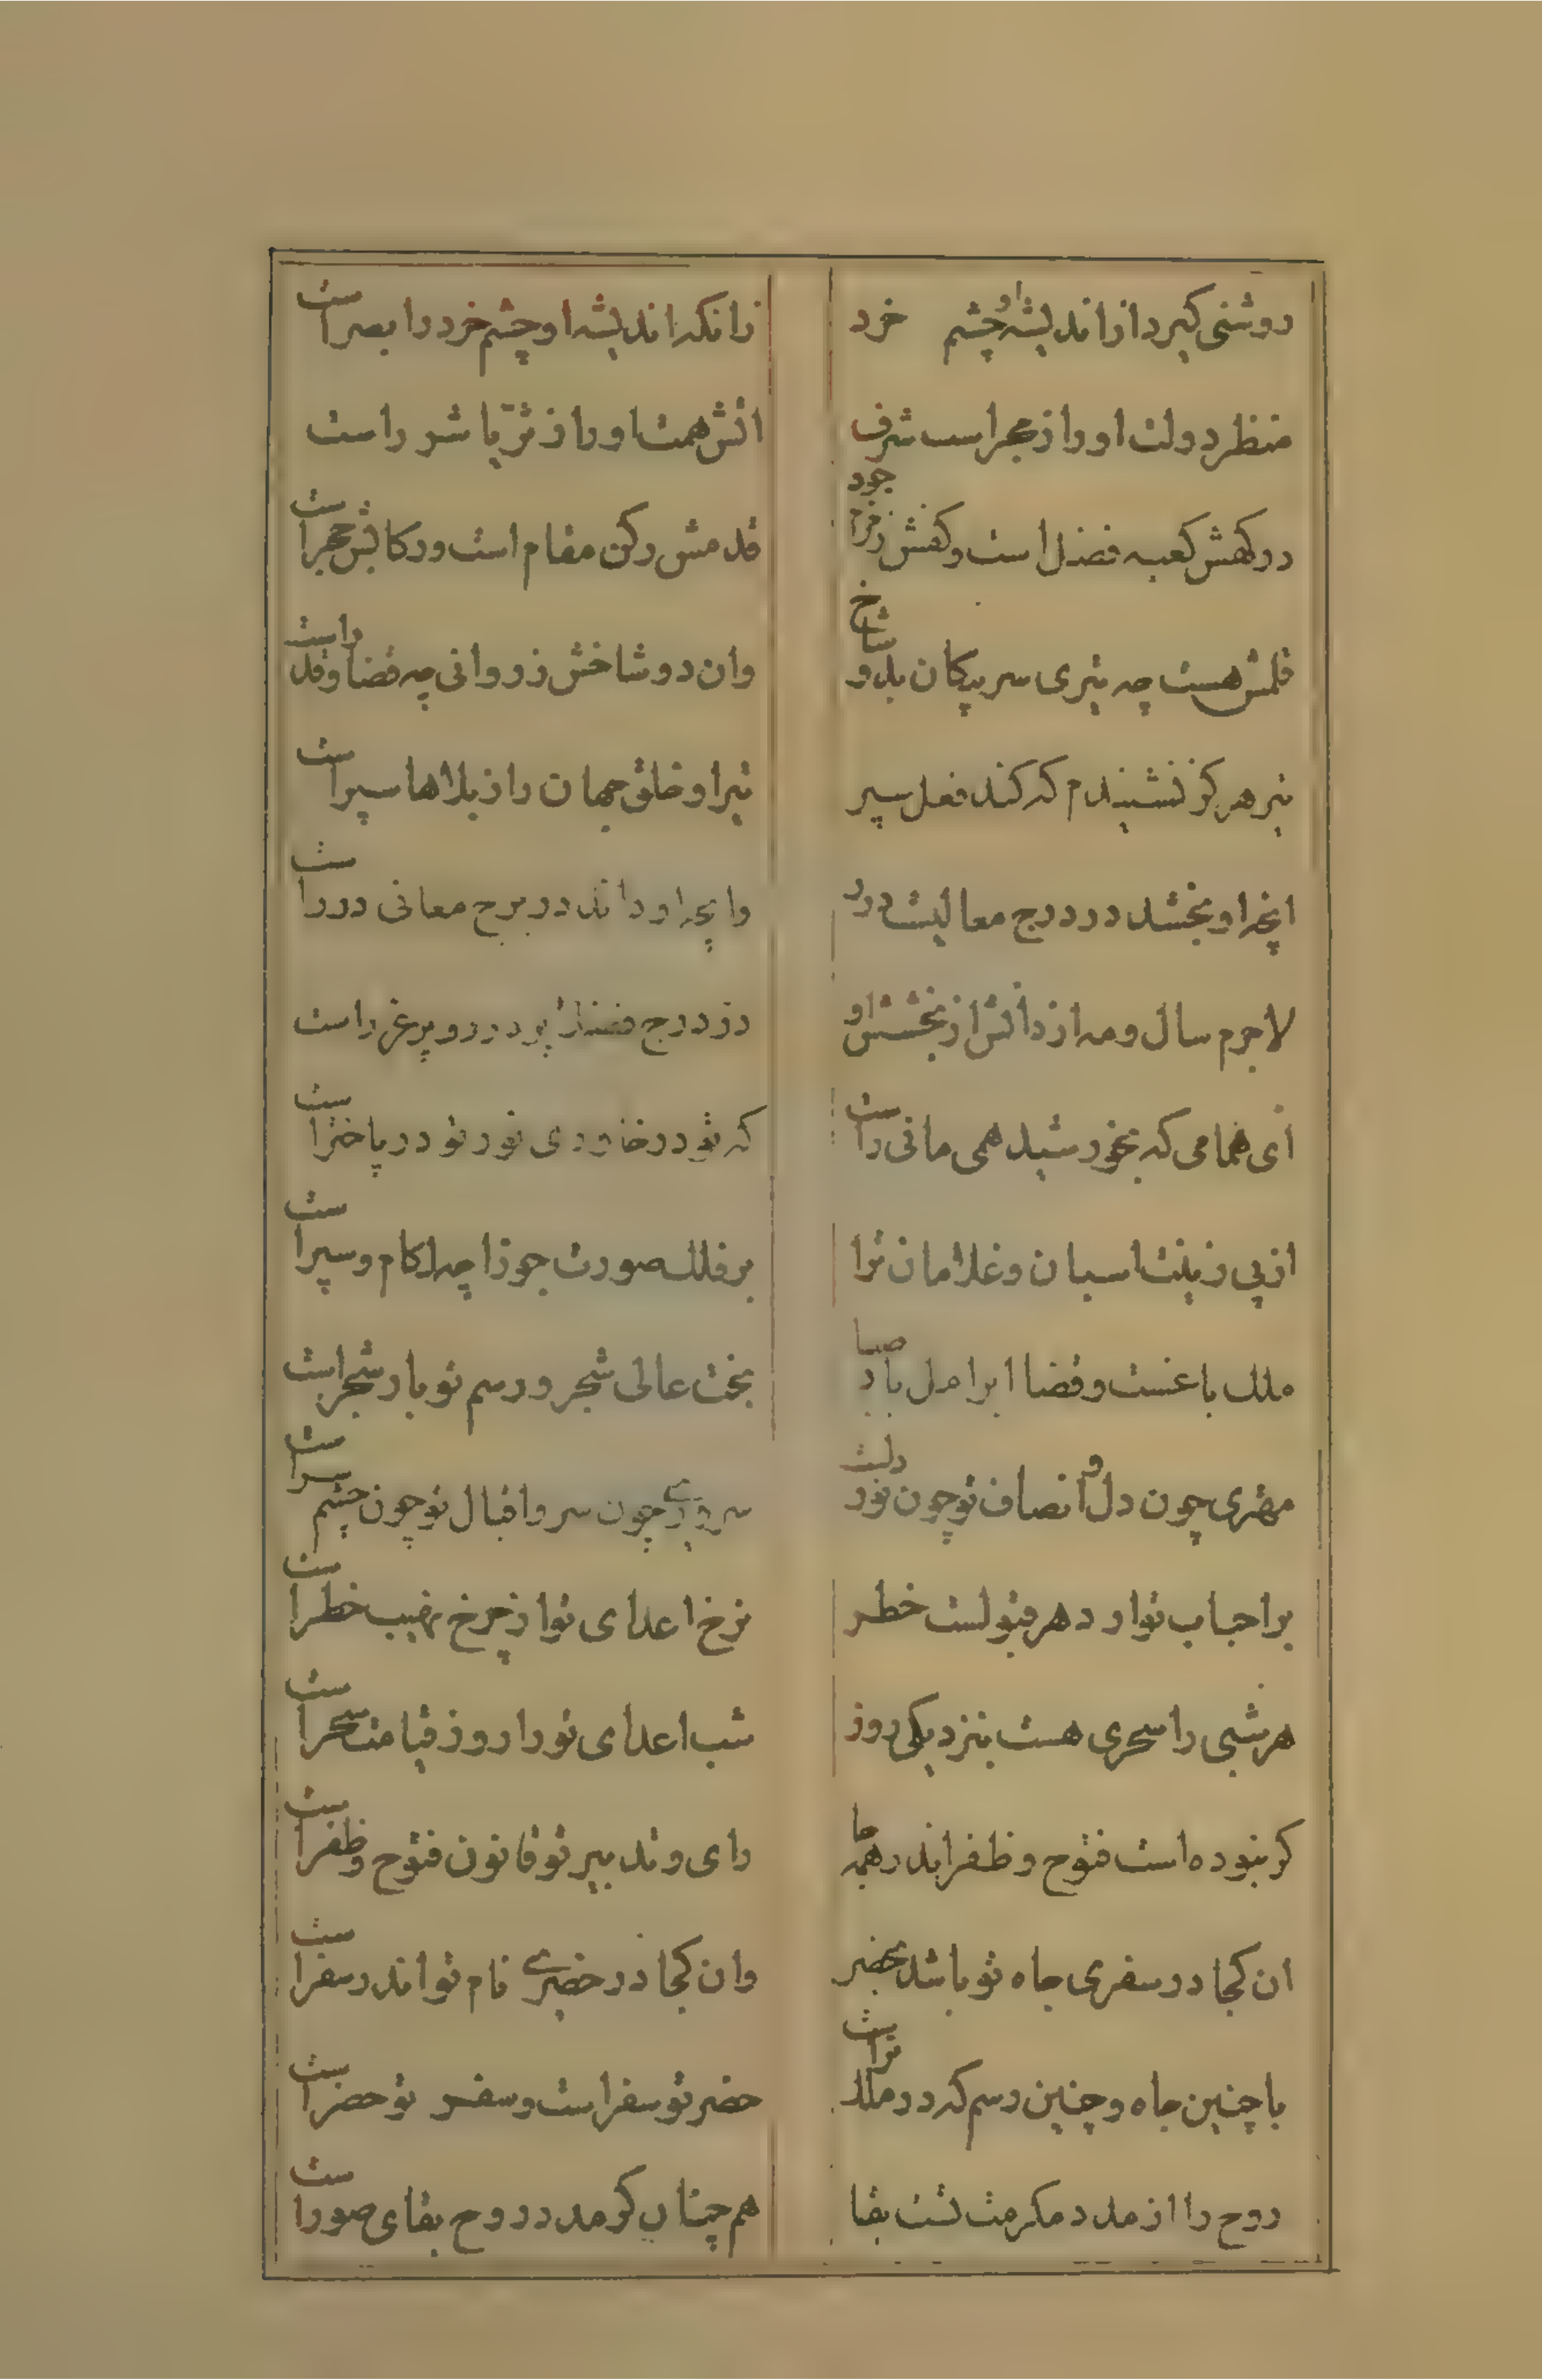 روشنی کیرد از اندیشه او چشم خرد زانکه اندیشه او چشم خرد را بصر است
منظر دولت او را ز مجرا است شرف اتش همت او را ز ثریا شرر است
در کهش کعبه فضل است و کفش زمزم جود قدمش رکن مقام است و رکابش حجر است
قلمش هست چه تیری سر پیکان بدو شاخ وان دو شاخش ز روانی چه قضا و قدر است
تیر هرکز نشنیدم که کند فعل سپر تیر او خلق جهان را ز بلاها سپر است
انچه او بخشد در درج معالیست درر وانچه او داند در برج معانی درر است
لاجرم سال و مه از دانش از بخشش او در درج فضل پر درر و پر غرر است
ای همامی که بخورشید همی مانی راست که تو در خاوری نور تو در باختر است
از پی زینت اسبان و غلامان ترا بر فلک صورت جوزا چه کام و سپر است
ملک باغست و قضا ابر امل باد صبا بخت عالی شجر و رسم تو بار شجر است
مهتری چون دل و انصاف تو چون نور دلست سروری چون سر و اقبال تو چون چشم سر است
بر احباب تو از دهر قبولست خطر نرخ اعدای تو از چرخ نهیب خطر است
هر شبی را سحری هست بنزدیکی روز شب اعدای تو را روز قیامت سحر است
کر نبوده است فتوح و ظفر اندر همه جا رای و تدبیر تو قانون فتوح و ظفر است
ان کجا در سفری جاه تو باشد بحضر وان کجا در حضری نام تو اندر سفر است
با چنین جاه و چنین رسم که در ملک تراست حضر تو سفر است و سفر تو حضر است
روح را از مدد مکرمت تست بقا هم چنان کز مدد روح بقای صور است